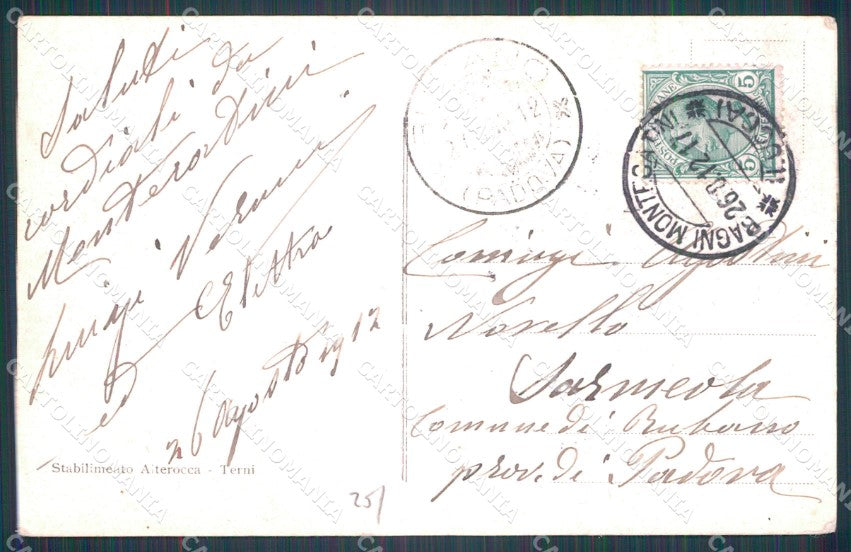 Saluti
cordiali da
Montecatini
ed Elettra
26 Agosto 1912
Stabilimento Alterocca - Terni
25/
(PADOVA)
12
POSTE ITALIANE
5 5
BAGNI MONTECATINI
(LUCCA)
26.8.12.17
Coniugi Agostini
Novello
Sarmeola
Comune di Rubano
prov. di Padova
CARTOLINOMANIA